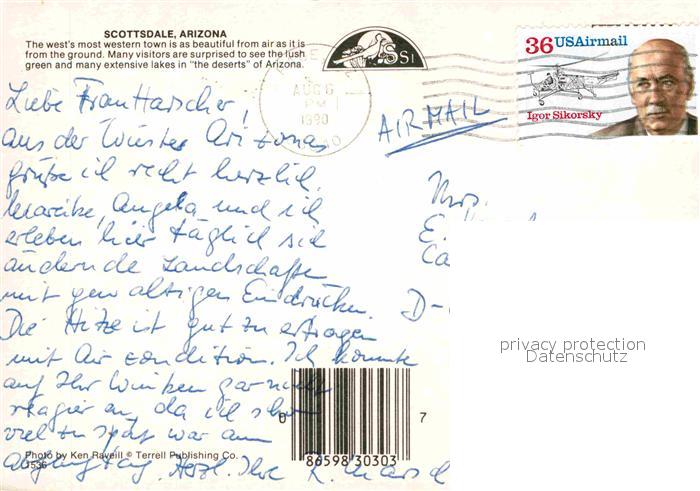 SCOTTSDALE, ARIZONA
The west's most western town is as beautiful from air as it is
from the ground. Many visitors are surprised to see the lush
green and many extensive lakes in "the deserts" of Arizona.
SSI
AUG 6
PM
1990
36 USAirmail
Igor Sikorsky
AIRMAIL
Liebe Frau Harscher!
aus der Wüste Arizonas
grüße ich recht herzlich.
Mareike, Angela und ich
erleben hier täglich sich
ändernde Landschaften
mit gewaltigen Eindrücken.
Die Hitze ist gut zu ertragen
mit Air condition. Ich konnte
auf Ihr Winken gar nicht
reagieren, da ich schon
viel zu spät war am
Abgang Herzl. Ihre R.
Mrs.
E.
Ca
D-
privacy protection
Datenschutz
0
7
86598 30303
Photo by Ken Raveill © Terrell Publishing Co.
1536